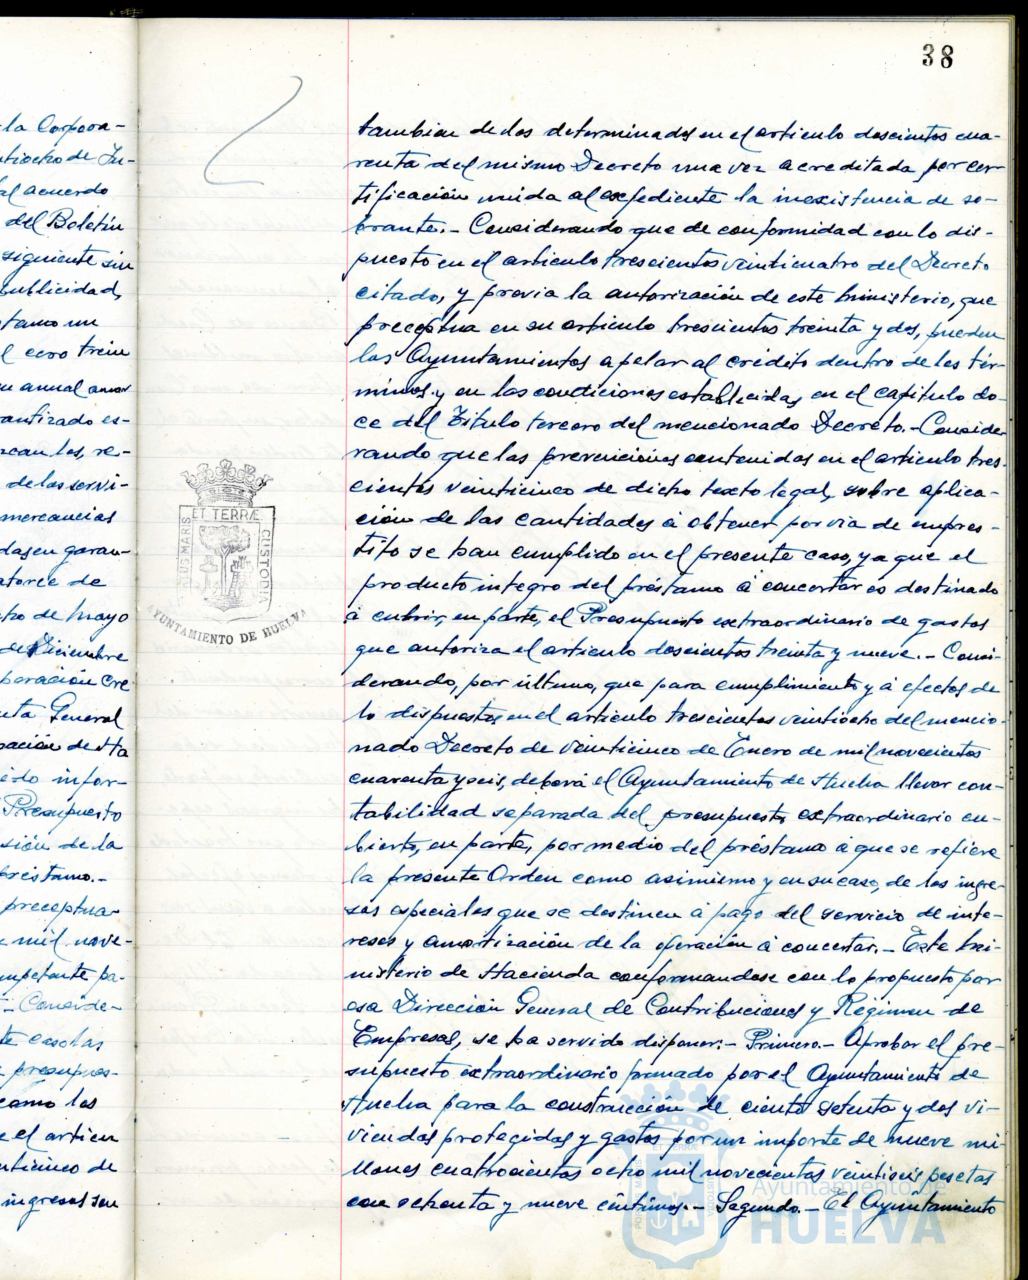 38
la Corpora-
tiocho de Ju-
tal acuerdo
del Boletín
siguiente sin
publicidad,
stamo un
l cero trein
en anual amor
rantizado es-
rcan los, re-
de los servi-
mercancias
das en garan-
atorce de
cho de Mayo
de Diciembre
peración cre
nta General
pación de Ha
ido infor-
Presupuesto
sión de la
préstamo.-
preceptua-
mil nove-
mpetente pa-
Conside-
te caso las
presupues-
como los
e el articu
nticinco de
ingresos son
tambien de los determinados en el articulo doscientos cua-
renta del mismo Decreto una vez acreditada por cer-
tificación unida al expediente la inexistencia de so-
brante.- Considerando que de conformidad con lo dis-
puesto en el articulo trescientos veinticuatro del Decreto
citado, y previa la autorización de este Ministerio, que
preceptua en su articulo trescientos treinta y dos, pueden
los Ayuntamientos apelar al crédito dentro de los tér-
minos y en las condiciones establecidas en el capitulo do-
ce del Titulo tercero del mencionado Decreto.- Conside-
rando que las prevenciones contenidas en el articulo tres-
cientos veinticinco de dicho texto legal, sobre aplica-
ción de las cantidades á obtener por via de empres-
tito se han cumplido en el presente caso, ya que el
producto integro del préstamo á concertar es destinado
á cubrir, en parte, el Presupuesto extraordinario de gastos
que autoriza el articulo doscientos treinta y nueve.- Consi-
derando, por último, que para cumplimiento y á efectos de
lo dispuesto en el articulo trescientos veintiocho del mencio-
nado Decreto de veinticinco de Enero de mil novecientos
cuarenta y seis, deberá el Ayuntamiento de Huelva llevar con-
tabilidad separada del presupuesto extraordinario cu-
bierto, en parte, por medio del préstamo á que se refiere
la presente Orden como asimismo y en su caso, de los ingre-
sos especiales que se destinen á pago del servicio de inte-
reses y amortización de la operación á concertar.- Este Mi-
nisterio de Hacienda conformandose con lo propuesto por
esa Dirección General de Contribuciones y Régimen de
Empresas, se ha servido disponer:- Primero.- Aprobar el pre-
supuesto extraordinario formado por el Ayuntamiento de
Huelva para la construcción de ciento setenta y dos vi-
viendas protegidas y gastos por un importe de nueve mi-
llones cuatrocientos ocho mil novecientas veintiseis pesetas
con setenta y nueve céntimos.- Segundo.- El Ayuntamiento
PORTUS MARIS ET TERRÆ CUSTODIA
AYUNTAMIENTO DE HUELVA
Ayuntamiento de
HUELVA